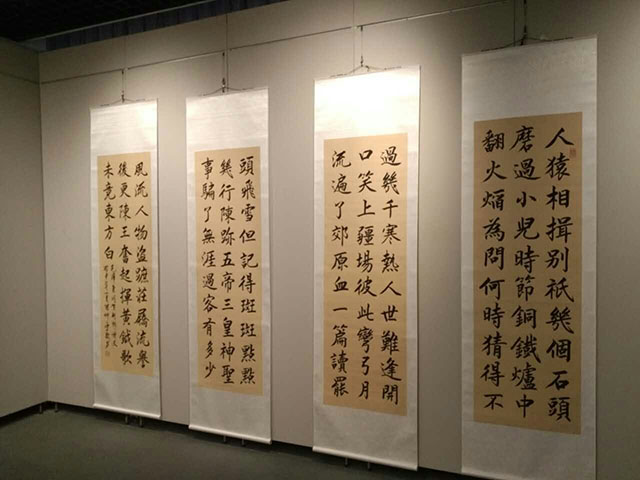 人猿相揖別祇幾個石頭
磨過小兒時節銅鐵爐中
翻火熖為問何時猜得不
過幾千寒熱人世難逢開
口笑上疆場彼此彎弓月
流遍了郊原血一篇讀罷
頭飛雪但記得斑斑點點
幾行陳跡五帝三皇神聖
事騙了無涯過客有多少
風流人物盜蹠莊屩流譽
後更陳王奮起揮黃鉞歌
未竟東方白